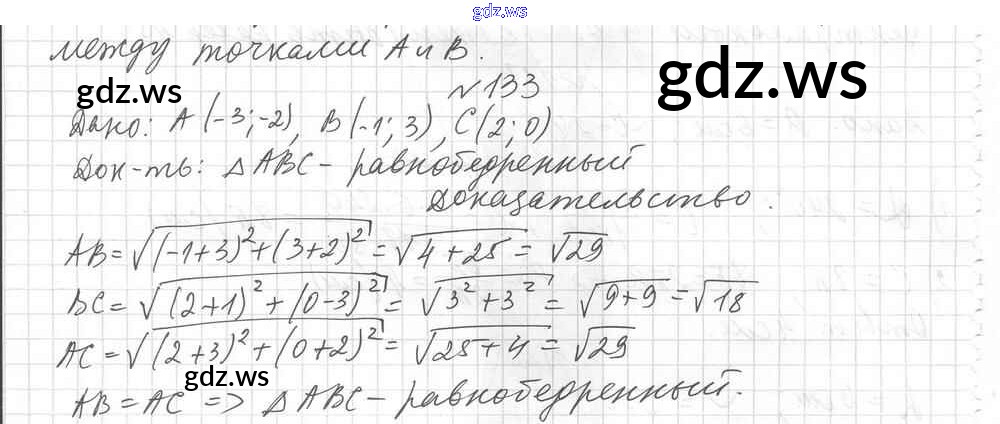 gdz.ws
между точками A и B.
gdz.ws
gdz.ws
№133
Дано: A(-3;-2), B(-1;3), C(2;0)
Док-ть: △ABC - равнобедренный
Доказательство.
AB=√((-1+3)²+(3+2)²)=√(4+25)=√29
BC=√((2+1)²+(0-3)²)=√(3²+3²)=√(9+9)=√18
AC=√((2+3)²+(0+2)²)=√(25+4)=√29
gdz.ws
AB=AC => △ABC - равнобедренный.